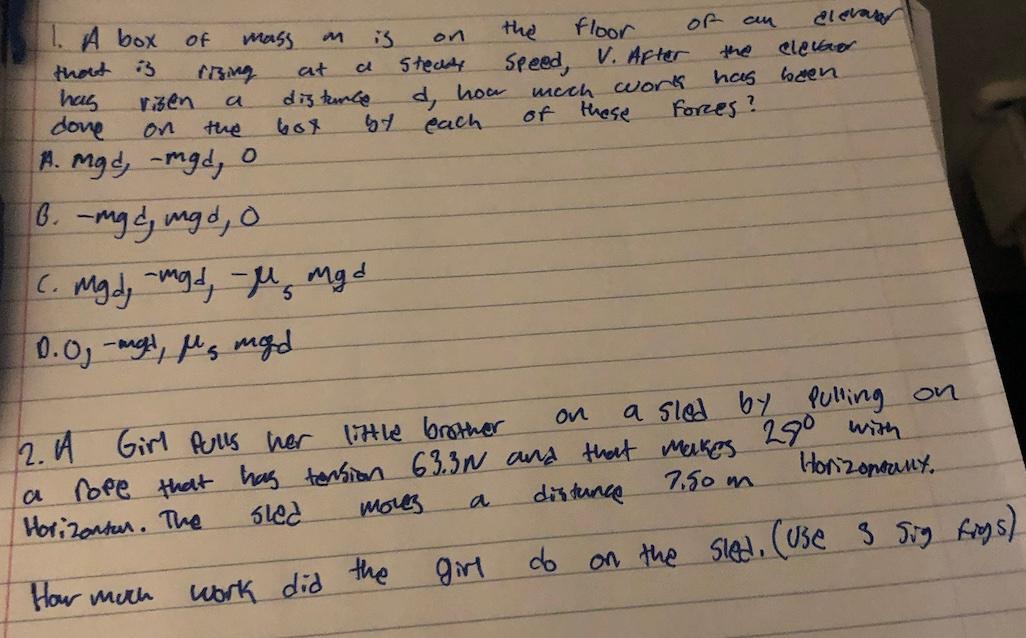 1. A box of mass m is on the floor of an elevator
that is rising at a steady speed, V. After the elevator
has risen a distance d, how much work has been
done on the box by each of these forces?
A. mgd, -mgd, 0
B. -mgd, mgd, 0
C. mgd, -mgd, -μs mgd
D. 0, -mgd, μs mgd
2. A Girl Pulls her little brother on a sled by Pulling on
a rope that has tension 63.3N and that makes 29° with
Horizontal. The sled moves a distance 7.50 m Horizontally.
How much work did the girl do on the sled. (Use 3 sig figs)